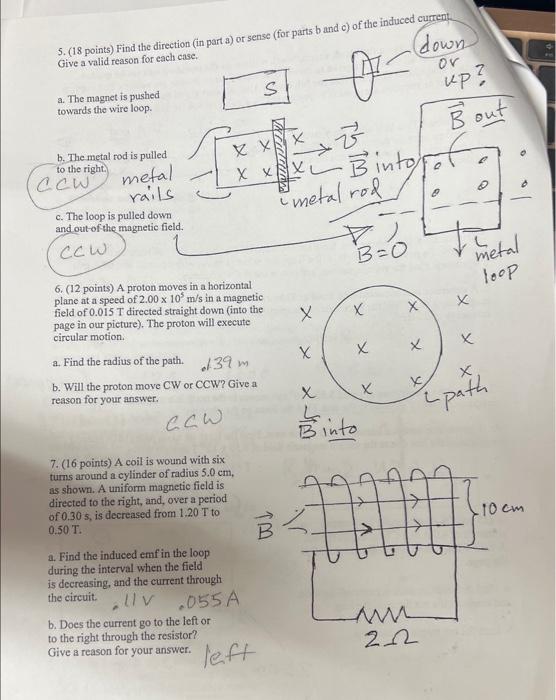 5. (18 points) Find the direction (in part a) or sense (for parts b and c) of the induced current.
Give a valid reason for each case.
down
or
up?
S
a. The magnet is pushed
towards the wire loop.
b. The metal rod is pulled
to the right
CCW
metal
rails
x x x
x x x
v
B into
metal rod
B out
c. The loop is pulled down
and out of the magnetic field.
CCW
B=0
metal
loop
6. (12 points) A proton moves in a horizontal
plane at a speed of 2.00 x 10⁵ m/s in a magnetic
field of 0.015 T directed straight down (into the
page in our picture). The proton will execute
circular motion.
a. Find the radius of the path.
.139 m
b. Will the proton move CW or CCW? Give a
reason for your answer.
CCW
x x x x
x x x x
x x x x
path
B into
7. (16 points) A coil is wound with six
turns around a cylinder of radius 5.0 cm,
as shown. A uniform magnetic field is
directed to the right, and, over a period
of 0.30 s, is decreased from 1.20 T to
0.50 T.
B
10 cm
a. Find the induced emf in the loop
during the interval when the field
is decreasing, and the current through
the circuit.
.11 V .055A
b. Does the current go to the left or
to the right through the resistor?
Give a reason for your answer.
left
2Ω